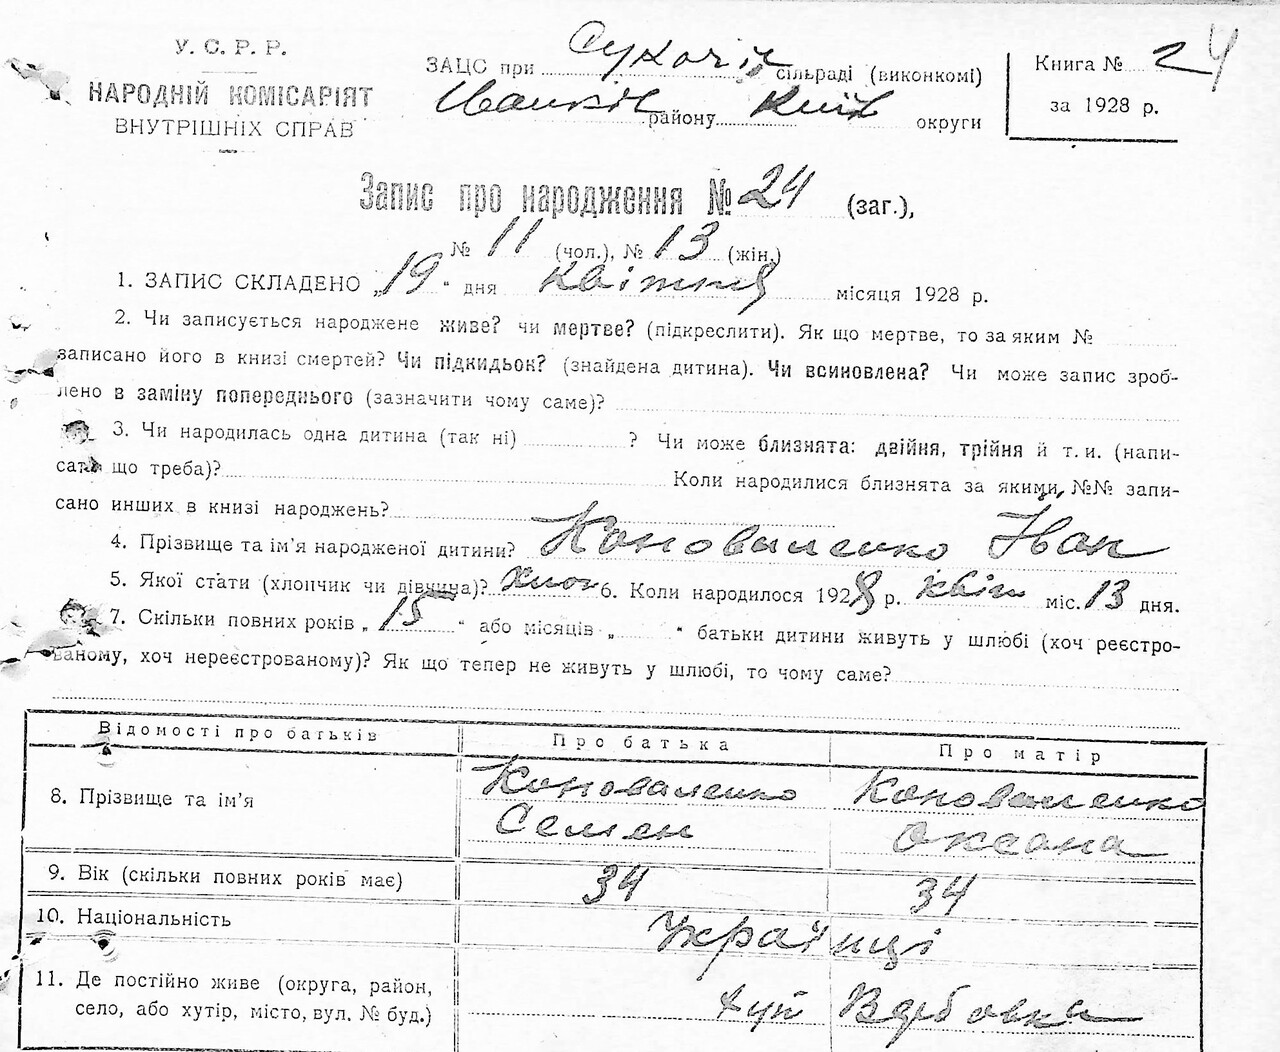 У. С. Р. Р.
НАРОДНІЙ КОМІСАРІЯТ
ВНУТРІШНІХ СПРАВ
ЗАЦС при Сукачів сільраді (виконкомі)
Іванків району Київ округи
Книга № 24
за 1928 р.
Запис про народження № 24 (заг.),
№ 11 (чол.), № 13 (жін.)
1. ЗАПИС СКЛАДЕНО „19“ дня квітня місяця 1928 р.
2. Чи записується народжене живе? чи мертве? (підкреслити). Як що мертве, то за яким №
записано його в книзі смертей? Чи підкидьок? (знайдена дитина). Чи всиновлена? Чи може запис зроб-
лено в заміну попереднього (зазначити чому саме)?
3. Чи народилась одна дитина (так ні) ? Чи може близнята: двійня, трійня й т. и. (напи-
сати що треба)? Коли народилися близнята за якими №№ запи-
сано инших в книзі народжень?
4. Прізвище та ім’я народженої дитини? Коноваленко Іван
5. Якої стати (хлопчик чи дівчина)? Хлоп 6. Коли народилося 1928 р. квіт міс. 13 дня.
7. Скільки повних років „ 15 “ або місяців „ “ батьки дитини живуть у шлюбі (хоч реєстро-
ваному, хоч нереєстрованому)? Як що тепер не живуть у шлюбі, то чому саме?
Відомості про батьків Про батька Про матір
8. Прізвище та ім’я Коноваленко Семен Коноваленко Оксана
9. Вік (скільки повних років має) 34 34
10. Національність Українці
11. Де постійно живе (округа, район,
село, або хутір, місто, вул. № буд.) хут